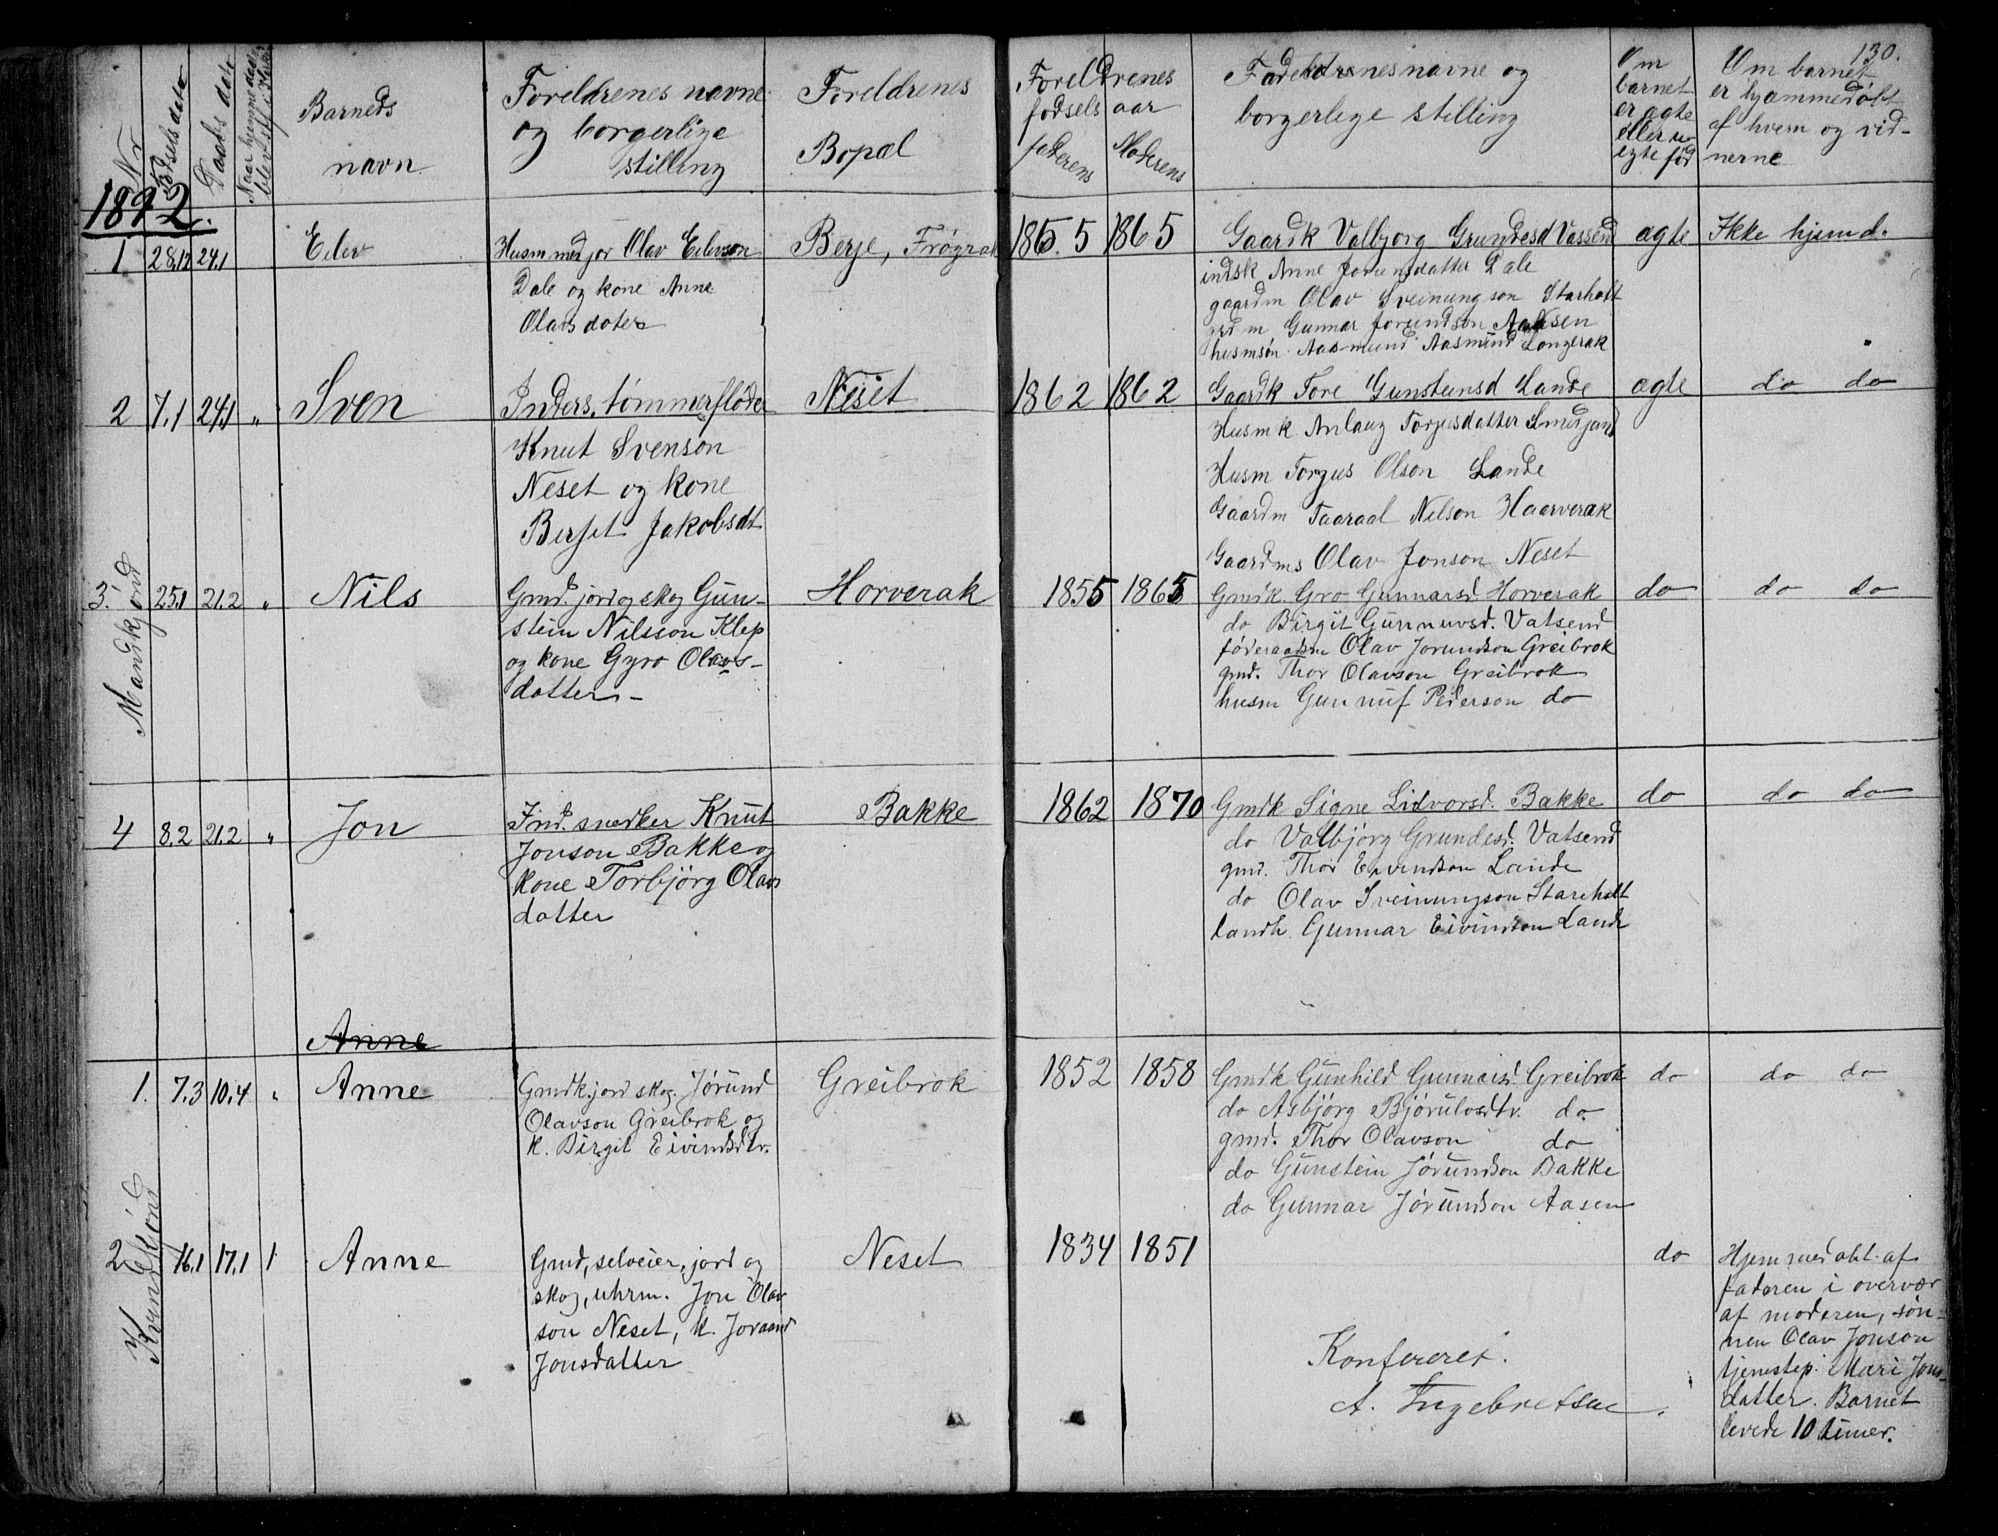 130.
Nr
Fødsels date
Daabs date
Barneds
navn
Foreldrenes navne
og borgerlige
stilling
Foreldrenes
Bopæl
Foreldrenes
fødsels aar
federens Moderens
Fadeldrenes navne og
borgerlige stilling
Om
barnet
er ægte
eller u-
egte fød
Om barnet
er hjæmmedøbt
af hvem og vid-
nerne
1892.
Mandkjønd
1 28.12 24.1
Eilev
Husm med jor Olav Eilevson
Dale og kone Anne
Olavsdater
Berje, Frøyrak
1865.5 1865
Gaardk Valbjorg Grundesd Vassend
indsk Anne Jorunsdatter Dale
gaardm Olav Sveinungson Starholt
grd m Gunnar Jorundson Aasen
husmsøn Aasmund Aasmund Langerak
ægte
Ikke hjemd.
2 7.1 24.1 "
Sven
Inders, tømmerfløder
Knut Svenson
Neset og kone
Berjet Jakobsdt
Neset
1862 1862
Gaardk Tore Gunstensd Lande
Husmk Anlaug Torjusdatter Smedjand
Husm Torgus Olson Lande
Gaardm Taaraal Nelson Haarverak
Gaardms Olav Jonson Neset
ægte
do do
3. 25.1 21.2 "
Nils
Gmd. jord og skog Gun-
stein Nilsson Klep
og kone Gyro Olavs-
datter -
Horverak
1855 1865
Gmdk. Gro Gunnarsd. Horverak
do Birgit Gunnuvsd. Vatsend
føderaadsm Olav Jorundson Greibrok
gmd. Thor Olavson Greibrok
husm Gunnuf Pederson do
do
do do
4 8.2 21.2 "
Jon
Ind. snedker Knut
Jonson Bakke og
kone Torbjørg Olavs
datter
Bakke
1862 1870
Gmdk Signe Lidvorsd. Bakke
do Valbjörg Grundesd. Vatsend
gmd. Thor Eivindson Lande
do Olav Sveinungson Stareholt
landh. Gunnar Eivindson Lande
do
do do
Anne
Kvindekjønd
1. 7.3 10.4 "
Anne
Gmdk. jord skog. Jørund
Olavson Greibrok og
k. Birgit Eivindsdtr.
Greibrok
1852 1858
Gmdk Gunhild Gunnarsd Greibrok
do Asbjörg Bjørulvsdtr. do
gmd. Thor Olavson do
do Gunstein Jørundson Bakke
do Gunnar Jørundson Aasen
do
do do
2 16.1 17.1 1
Anne
Gmd, selveier, jord og
skog, uhrm. Jon Olav
son Neset, k. Joraand
Jonsdatter
Neset
1834 1851
do
Hjemmedøbt af
faderen i overvær
af moderen, søn-
nen Olav Jonson
tjenestep. Mari Jons-
datter. Barnet
levede 10 timer.
Konfereret.
A. Ingebretsen